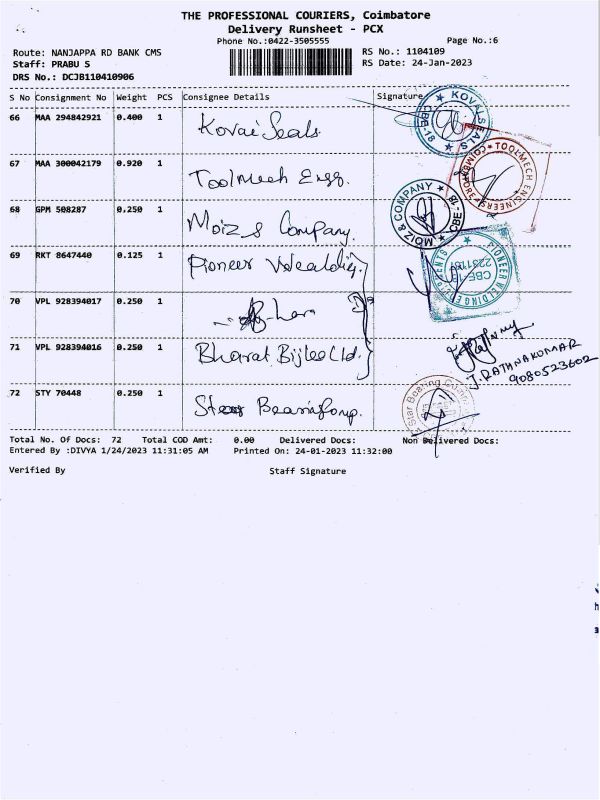 THE PROFESSIONAL COURIERS, Coimbatore
Delivery Runsheet - PCX
Phone No.:0422-3505555
Page No.:6
Route: NANJAPPA RD BANK CMS
RS No.: 1104109
Staff: PRABU S
RS Date: 24-Jan-2023
DRS No.: DCJB110410906
S No Consignment No Weight PCS Consignee Details Signature
66 MAA 294842921 0.400 1 Kovai Seals
KOVAI SEALS CBE-18
67 MAA 300042179 0.920 1 Toolmech Engg.
TOOLMECH ENGINEERS COIMBATORE
68 GPM 508287 0.250 1 Moiz & Company
MOIZ & COMPANY CBE-18
69 RKT 8647440 0.125 1 Pioneer
PIONEER WELDING CBE-18
70 VPL 928394017 0.250 1
71 VPL 928394016 0.250 1 Bharat Bijlee Ltd.
J. RATHNAKUMAR
9080523602
72 STY 70448 0.250 1 Star Bearing
Star Bearing
Total No. Of Docs: 72 Total COD Amt: 0.00 Delivered Docs: Non Delivered Docs:
Entered By :DIVYA 1/24/2023 11:31:05 AM Printed On: 24-01-2023 11:32:00
Verified By Staff Signature